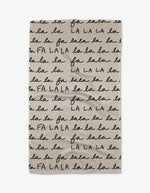 la la la fa lala la la
FA LA LA la la la la
la la la fa lala la la
FA LA LA la la la la
la la la fa lala la la
FA LA LA la la la la
la la la fa lala la la
FA LA LA la la la la
la la la fa lala la la
FA LA LA la la la la